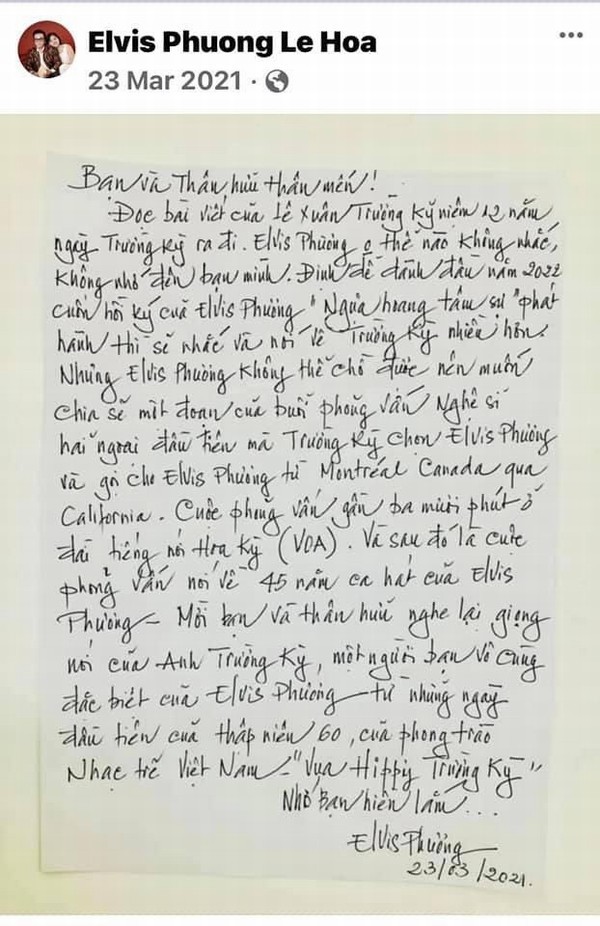 Elvis Phuong Le Hoa
23 Mar 2021
Bạn và Thân hữu thân mến!
Đọc bài viết của Lê Xuân Trường kỷ niệm 12 năm
ngày Trường Kỳ ra đi. Elvis Phương o thể nào không nhắc,
không nhớ đến bạn mình. Định để dành đầu năm 2022
cuốn hồi ký của Elvis Phương "Ngựa hoang tâm sự" phát
hành thì sẽ nhắc và nói về Trường Kỳ nhiều hơn.
Nhưng Elvis Phương không thể chờ được nên muốn
chia sẽ một đoạn của buổi phỏng vấn Nghệ sĩ
hải ngoại đầu tiên mà Trường Kỳ chọn Elvis Phương
và gọi cho Elvis Phương từ Montréal Canada qua
California. Cuộc phỏng vấn gần ba mươi phút ở
đài tiếng nói Hoa Kỳ (VOA). Và sau đó là cuộc
phỏng vấn nói về 45 năm ca hát của Elvis
Phương – Mời bạn và thân hữu nghe lại giọng
nói của Anh Trường Kỳ, một người bạn vô cùng
đặc biệt của Elvis Phương – từ những ngày
đầu tiên của thập niên 60, của phong trào
Nhạc trẻ Việt Nam – "Vua Hippy Trường Kỳ"
Nhớ Bạn hiền lắm...
Elvis Phương
23/03/2021.